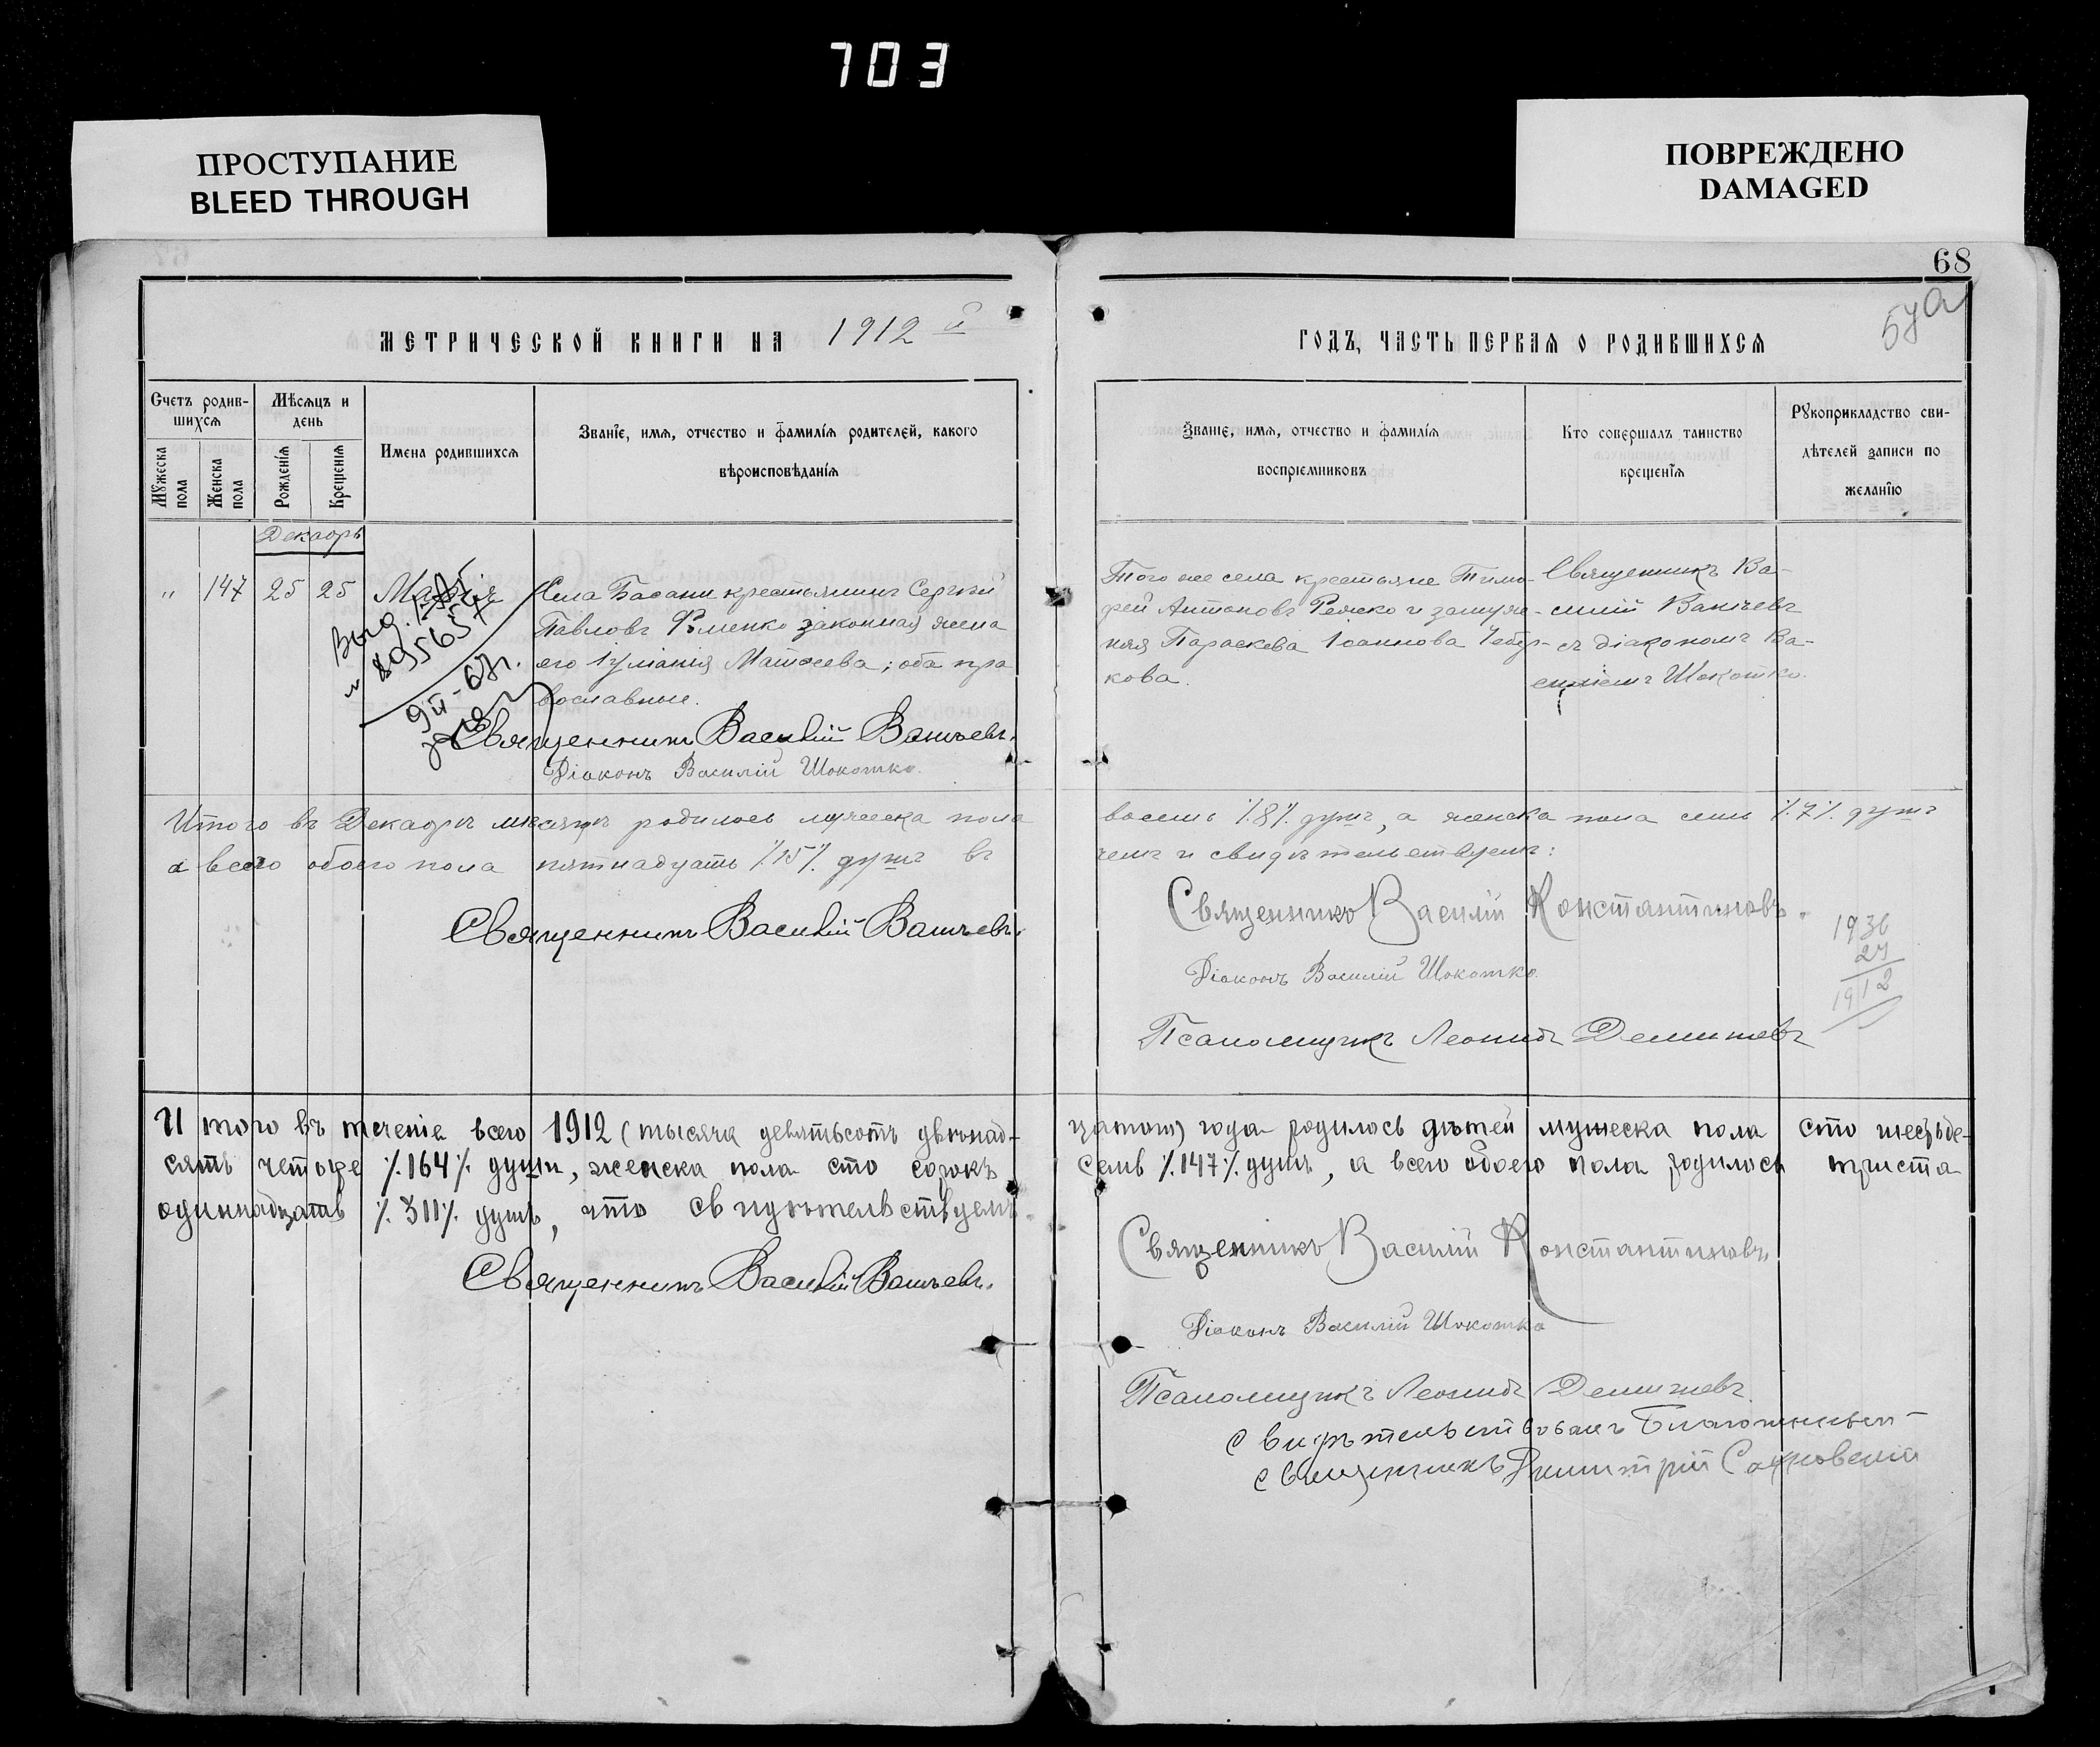 703
ПРОСТУПАНИЕ
BLEED THROUGH
ПОВРЕЖДЕНО
DAMAGED
68
МЕТРИЧЕСКОЙ КНИГИ НА 1912 й
ГОДЪ, ЧАСТЬ ПЕРВАЯ О РОДИВШИХСЯ
Счетъ родив-
шихся
Мужеска пола
Женска пола
Мѣсяцъ и
день
Рожденія
Крещенія
Имена родившихся
Званіе, имя, отчество и фамилія родителей, какого
вѣроисповѣданія
Званіе, имя, отчество и фамилія
воспріемниковъ
Кто совершалъ таинство
крещенія
Рукоприкладство сви-
дѣтелей записи по
желанію
Декабрь
" 147 25 25 Марія
Села Басани крестьянинъ Сергѣй
Павловъ законная жена
его Іуліанія Матѳеева; оба пра
вославные.
Священникъ Василій
Діаконъ Василій Шокотко.
Того же села крестьяне Тимо-
фей Антоновъ и замуж-
няя Параскева Іоаннова
кова.
Священникъ Ва-
силій
съ діакономъ Ва-
силіемъ Шокотко.
Итого въ Декабрѣ мѣсяцѣ родилось мужеска пола
восемь ٪8٪ душъ, а женска пола семь ٪7٪ душъ
а всего обоего пола пятнадцать ٪15٪ душъ въ
чемъ и свидѣтельствуемъ:
Священникъ Василій
Священникъ Василій Константиновъ.
Діаконъ Василій Шокотко.
Псаломщикъ Леонидъ
1936
24
1912
И того въ теченіе всего 1912 (тысяча девятьсотъ двѣнад-
цатом) года родилось дѣтей мужеска пола сто шестьде-
сятъ четыре ٪164٪ души, женска пола сто сорокъ
семь ٪147٪ душъ, а всего обоего пола родилось триста
одиннадцать ٪311٪ душъ, что свидѣтельствуемъ.
Священникъ Василій
Священникъ Василій Константиновъ
Діаконъ Василій Шокотко
Псаломщикъ Леонидъ
Свидѣтельствовалъ Благочинный
священникъ Димитрій